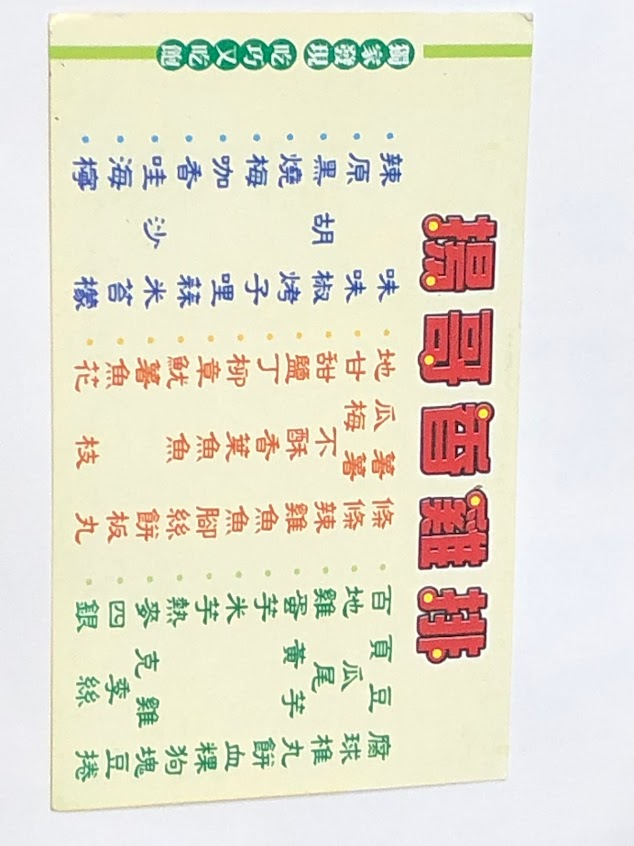 揚哥香雞排
獨家發現 吃巧又吃飽
辣味
原味
黑胡椒
燒烤
梅子
咖哩
香蒜
哇沙米
海苔
檸檬
地瓜薯條
甘梅薯條
甜不辣
鹽酥雞
丁香魚
柳葉魚
章魚腳
魷魚絲
薯餅
魚板
花枝丸
百頁豆腐
地瓜球
雞尾椎
蛋黃芋丸
芋餅
米血
芋粿
熱狗
麥克雞塊
四季豆
銀絲捲